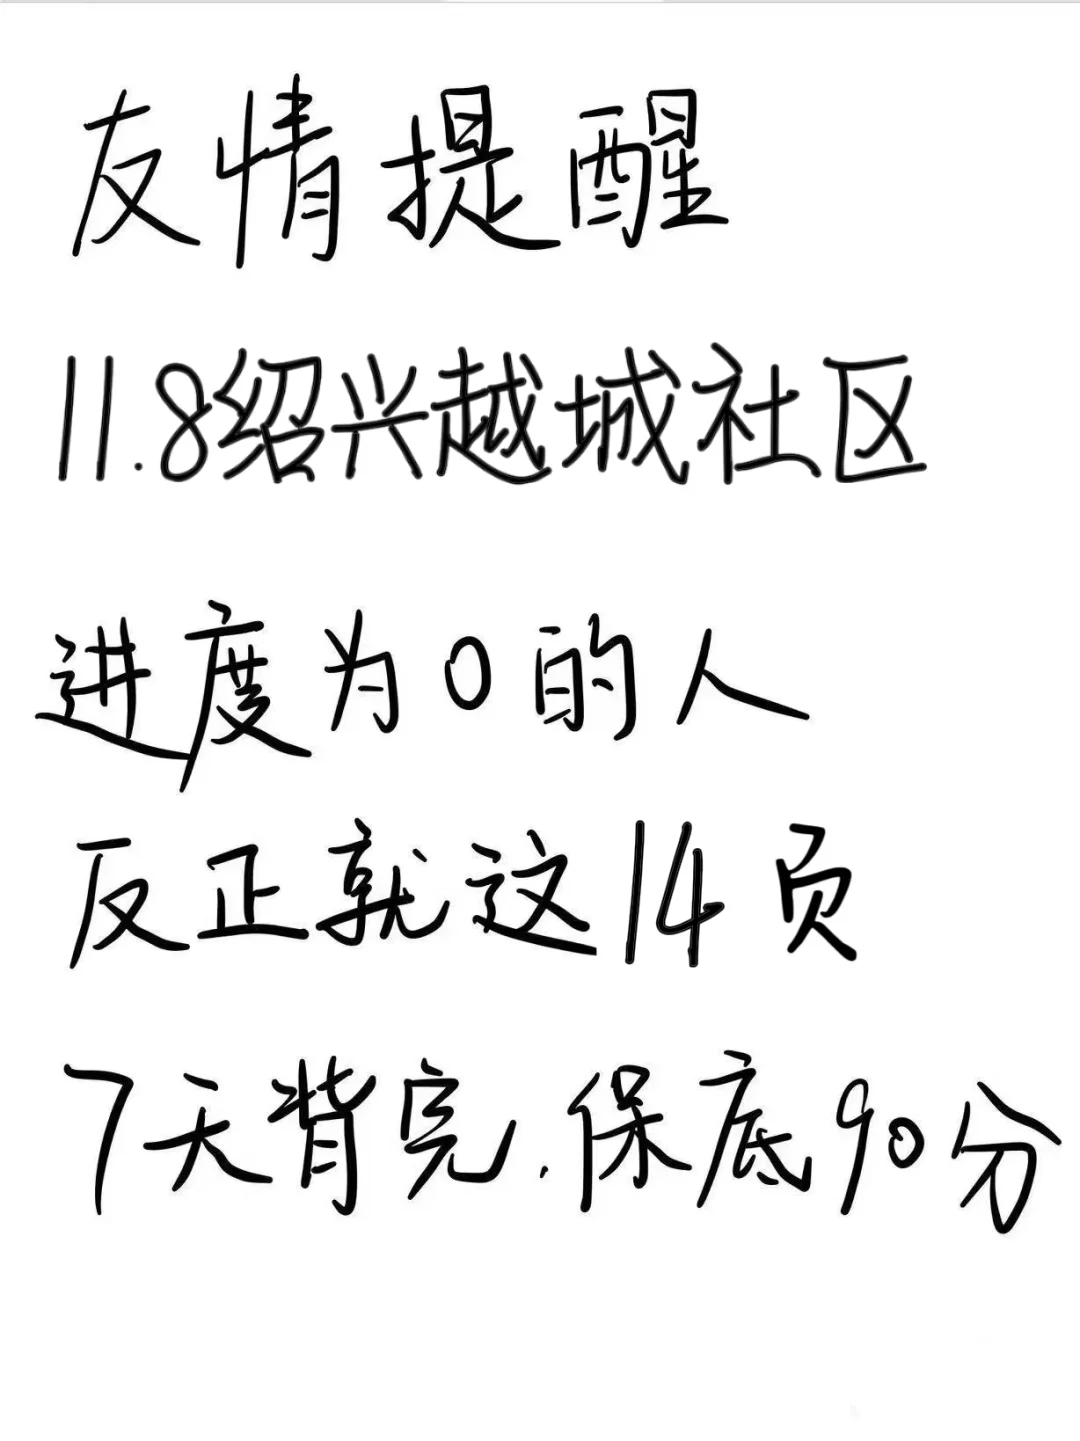 友情提醒
11.8绍兴越城社区
进度为0的人
反正就这14页
7天背完.保底90分